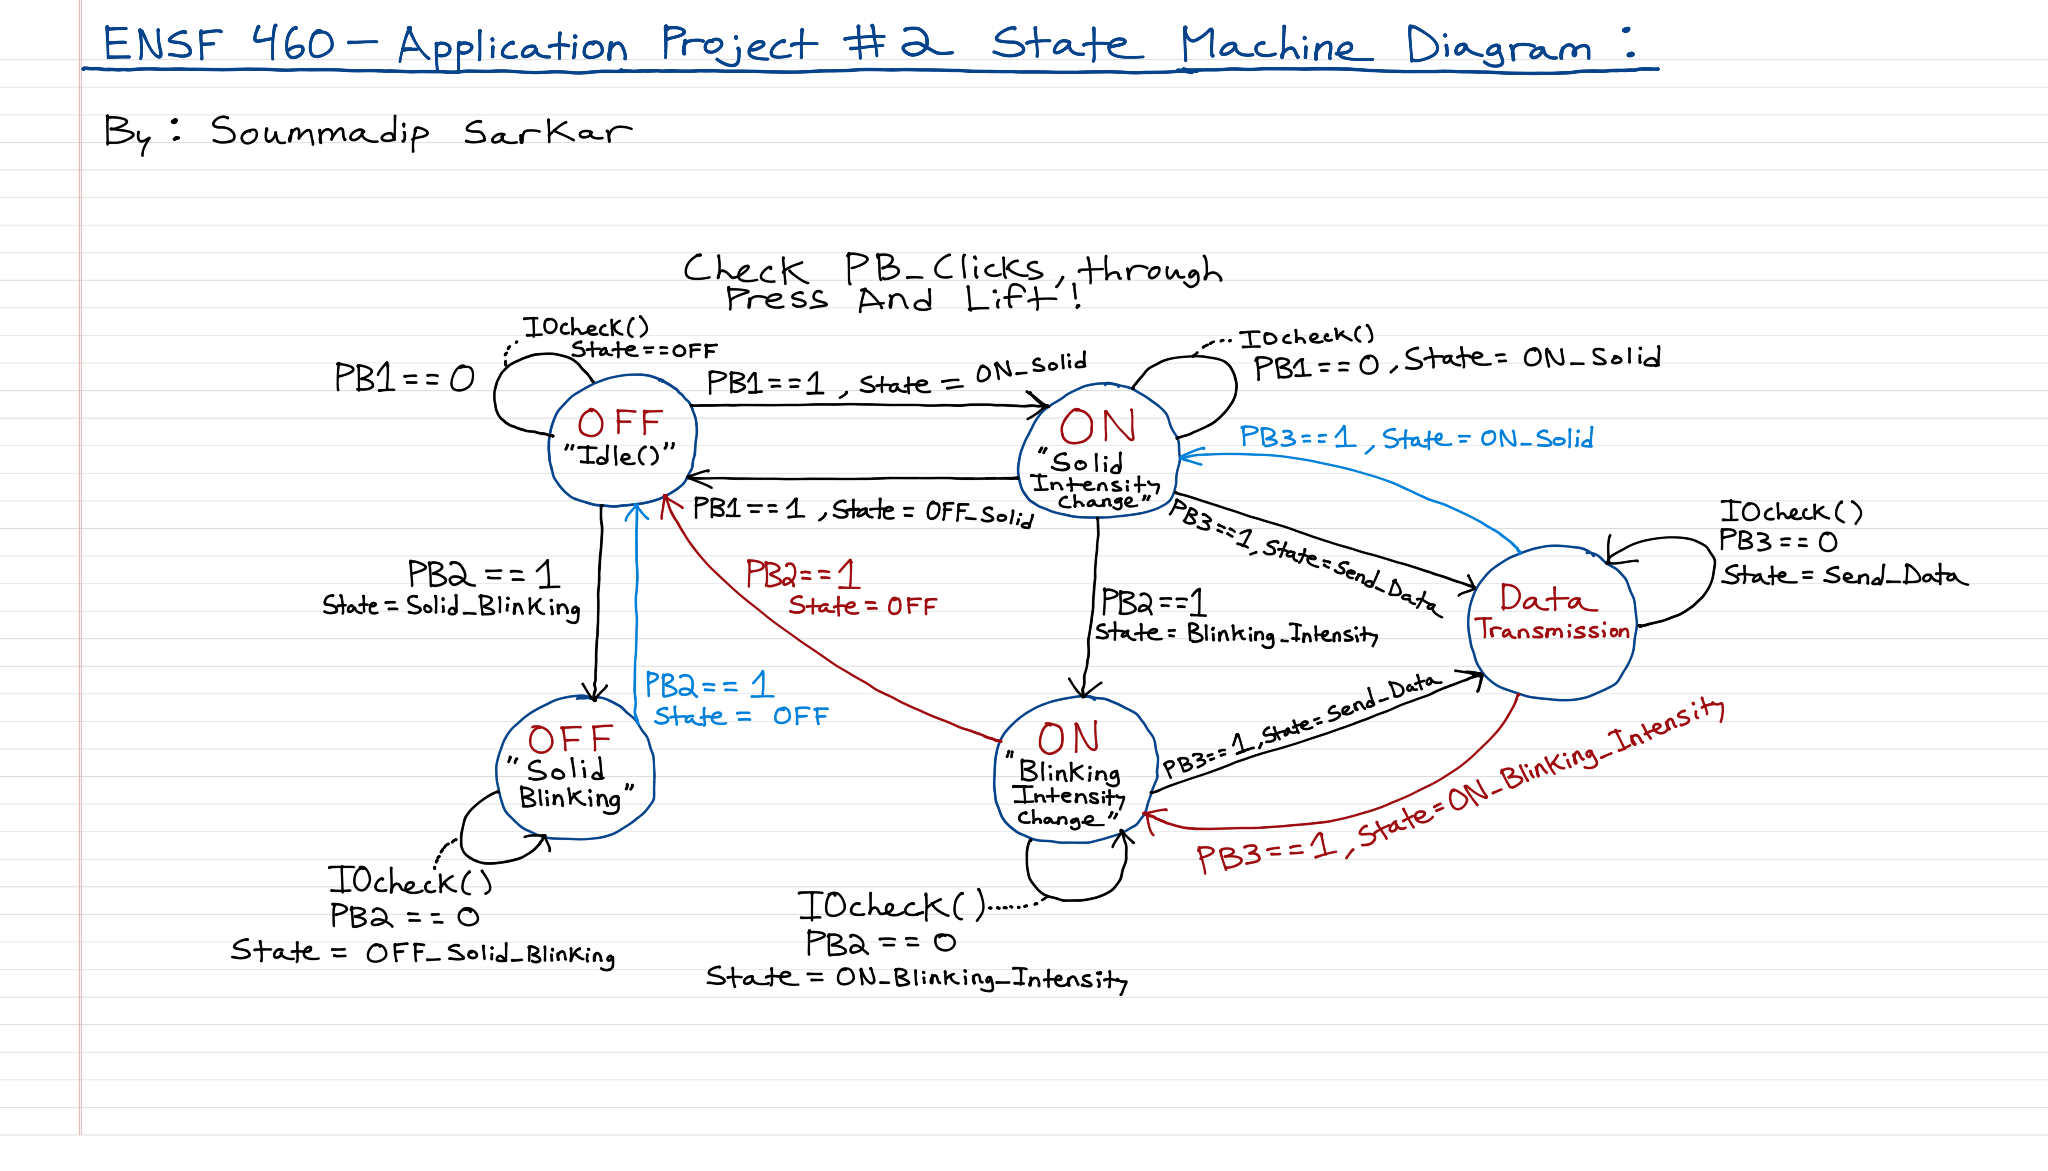 ENSF 460 - Application Project #2 State Machine Diagram :
By : Soummadip Sarkar
Check PB_Clicks, through
Press And Lift!
IOcheck()
State==OFF
PB1==0
PB1==1 , State = ON_Solid
IOcheck()
PB1==0 , State = ON_Solid
OFF
"Idle()"
ON
"Solid
Intensity
Change"
PB3==1 , State = ON_Solid
PB1==1 , State = OFF_Solid
PB3==1, State=Send_Data
IOcheck()
PB3==0
State = Send_Data
PB2 ==1
State = Solid_Blinking
PB2==1
State = OFF
PB2==1
State = Blinking_Intensity
Data
Transmission
PB2== 1
State = OFF
PB3==1, State=Send_Data
OFF
"Solid
Blinking"
ON
"Blinking
Intensity
Change"
PB3==1 , State=ON_Blinking_Intensity
IOcheck()
PB2 == 0
State = OFF_Solid_Blinking
IOcheck()
PB2 == 0
State = ON_Blinking_Intensity